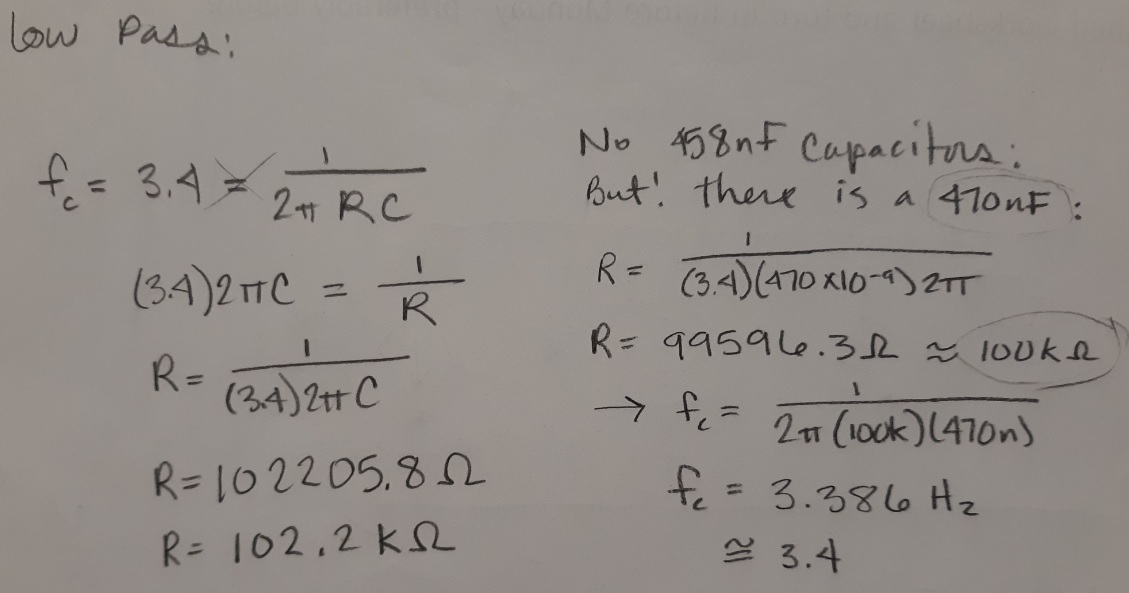 Low Pass:
f_c = 3.4 = 1/(2π RC)
(3.4)2πC = 1/R
R = 1/((3.4)2πC)
R=102205.8Ω
R= 102.2 kΩ
No 458nF Capacitors:
But! there is a 470nF:
R = 1/((3.4)(470x10^-9)2π)
R= 99596.3Ω ≈ 100kΩ
→ f_c = 1/(2π(100k)(470n))
f_c = 3.386 Hz
≅ 3.4